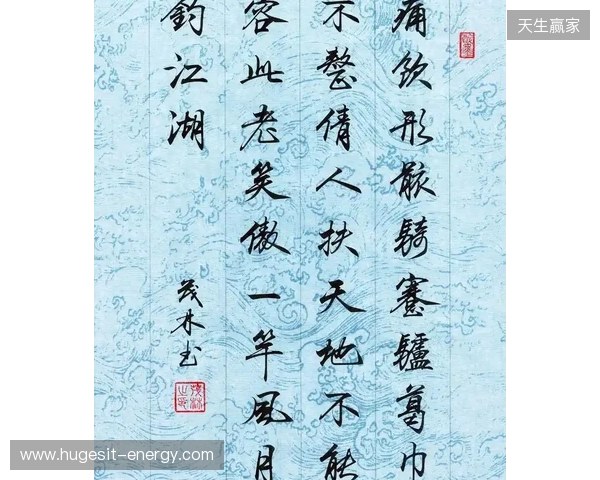 天生赢家
痛饮形骸騎蹇驢葛巾
不整倩人扶天地不能
容此老笑傲一竿風月
釣江湖
茂林书
www.hugesit-energy.com